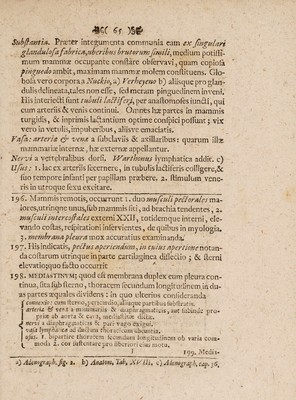 65
Substantia. Præter integumenta communia eam ex singulari
glandulosa fabrica, uberibus brutorum simili, medium potissi-
mum mammæ occupante constare observavi, quam copiosa
pinguedo ambit, maximam mammæ molem constituens. Glo-
bosa vero corpora a Nuckio, a) Verheyeno b) aliisque pro glan-
dulis delineata, tales non esse, sed meram pinguedinem inveni.
His interjecti sunt tubuli lactiferi, per anastomoses invicti, qui
cum arteriis & venis continui. Omnes hæ partes in mammis
turgidis, & inprimis lactantium optime conspici possunt; vix
vero in vetulis, impuberibus, aliisve emaciatis.
Vasa: arteriæ & venæ a subclaviis & axillaribus: quarum illæ
mammariæ internæ, hæ externæ appellantur.
Nervi a vertebralibus dorsi. Warthonus lymphatica addit. c)
Usus; 1. lac ex arteriis secernere, in tubulis lactiferis colligere, &
suo tempore infanti per papillam præbere. 2. stimulum vene-
ris in utroque sexu excitare.
196. Mammis remotis, occurrunt 1. duo musculi pectorales ma-
jores, utrinque unus, sub mammis siti, ad brachia tendentes, 2.
musculi intercostales externi XXII, totidemque interni, ele-
vando costas, respirationi inservientes, de quibus in myologia,
3. membrana pleura mox accuratius examinanda.
197. His indicatis, pectus aperiendum, in cujus apertione notan-
da costarum utrinque in parte cartilaginea dissectio; & sterni
elevatio, quo facto occurrit
198. MEDIASTINUM; est membrana duplex cum pleura con-
tinua, sita sub sterno, thoracem secundum longitudinem in du-
as partes æquales dividens: in quo ulterius consideranda
connexio: cum sterno, pericardio, aliisque partibus subtractis.
arteriæ & venæ a mammariis & diaphragmaticis, aut subinde pro-
priæ ab aorta & cava, mediastinæ dictæ.
nervi a diaphragmaticis & pari vago exigui.
vasa lymphatica ad ductum thoracicum abeuntia.
usus: 1. bipartire thoracem secundum longitudinem ob varia com-
moda 2. cor sustentare pro liberiori ejus motu.
I
199. Medis-
a) Adenograph. fig. 2. b) Anatom. Tab. XVIII. c) Adenograph. cap. 36.